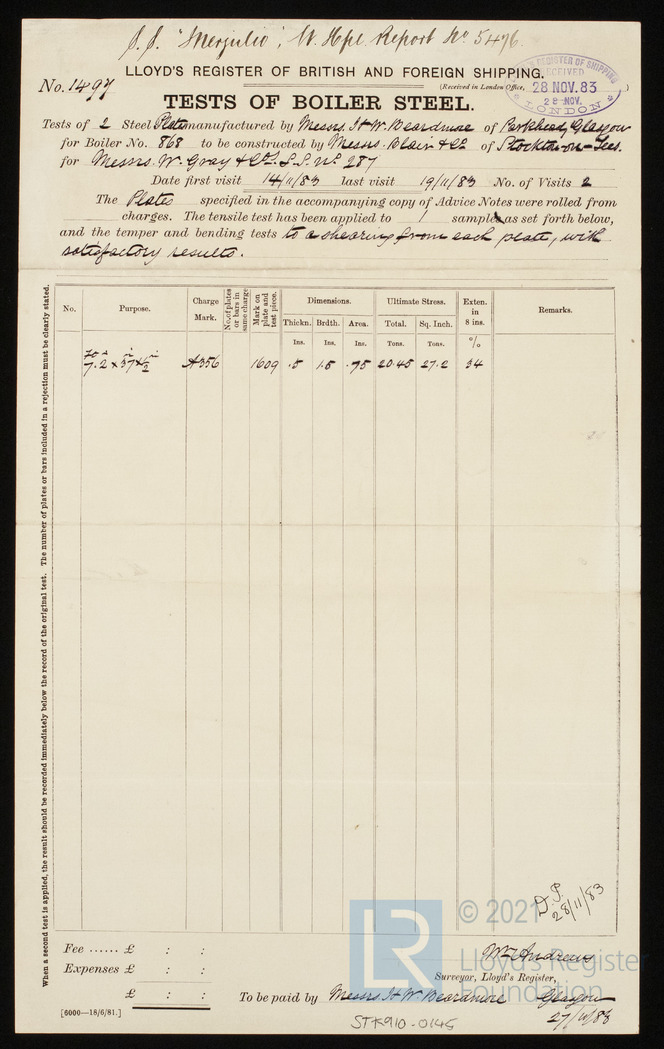 S.S. "Merjulio", W. Hpl. Report No 5476.
No. 1497
LLOYD'S REGISTER OF BRITISH AND FOREIGN SHIPPING.
(Received in London Office,
REGISTER OF SHIPPING
RECEIVED
28 NOV. 83
28 NOV.
LONDON
TESTS OF BOILER STEEL.
Tests of 2 Steel Plates manufactured by Messrs. & W. Beardmore of Parkhead, Glasgow
for Boiler No. 868 to be constructed by Messrs. Blair & Co of Stockton-on-Tees.
for Messrs. W. Gray & Co. S.S. No 287
Date first visit 14/11/83 last visit 19/11/83 No. of Visits 2
The Plates specified in the accompanying copy of Advice Notes were rolled from
charges. The tensile test has been applied to 1 sample as set forth below,
and the temper and bending tests to a shearing from each plate, with
satisfactory results.
When a second test is applied, the result should be recorded immediately below the record of the original test. The number of plates or bars included in a rejection must be clearly stated.
No. Purpose. Charge Mark. No. of plates or bars in same charge Mark on plate and test piece. Dimensions. Ultimate Stress. Exten. in 8 ins. Remarks.
Thickn. Brdth. Area. Total. Sq. Inch.
Ins. Ins. Ins. Tons. Tons. %
7.2 x 37 x 1/2 A356 1609 .5 1.5 .75 20.45 27.2 34
D.P.
28/11/83
© 2021
Lloyd's Register
Foundation
LR
Fee ...... £ : :
Expenses £ : :
£ : :
Wm Andrews
Surveyor, Lloyd's Register,
To be paid by Messrs. & W Beardmore Glasgow
27/11/83
[6000—18/6/81.]
STK910-0145